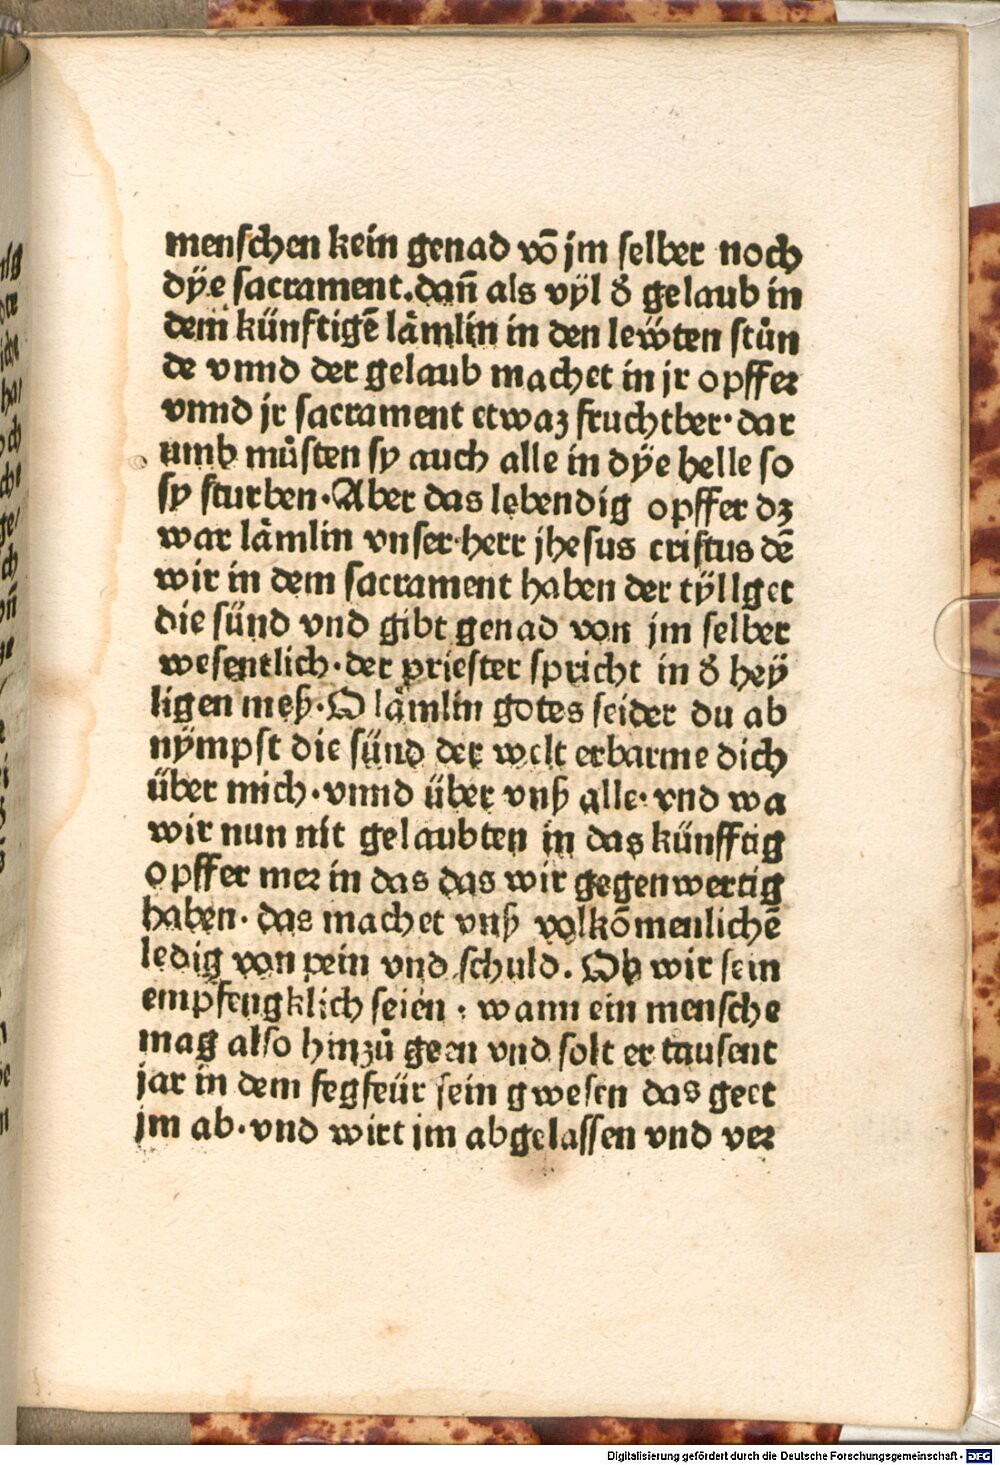 menschen kein genad võ jm selber noch
dÿe sacrament. dañ als vÿl d̕ gelaub in
dem künftigē lämlin in den lewten stůn
de vnnd der gelaub machet in jr opffer
vnnd jr sacrament etwaz fruchtber· dar
umb můsten sy auch alle in dÿe helle so
sy sturben· Aber das lebendig opffer dz
war lämlin vnser herr jhesus cristus dē
wir in dem sacrament haben der tÿllget
die sünd vnd gibt genad von jm selber
wesentlich· der priester spricht in d̕ heÿ
ligen meß· O lämlin gotes seider du ab
nÿmpst die sünd der welt erbarme dich
über mich· vnnd über vnß alle· vnd wa
wir nun nit gelaubten in das künfftig
opffer mer in das das wir gegenwertig
haben· das machet vnß volkõmenlichē
ledig von pein vnd schuld. Ob wir sein
empfengklich seien · wann ein mensche
mag also hinzů geen vnd solt er tausent
jar in dem fegfeür sein gwesen das geet
jm ab· vnd wirt jm abgelassen vnd ver
Digitalisierung gefördert durch die Deutsche Forschungsgemeinschaft - DFG